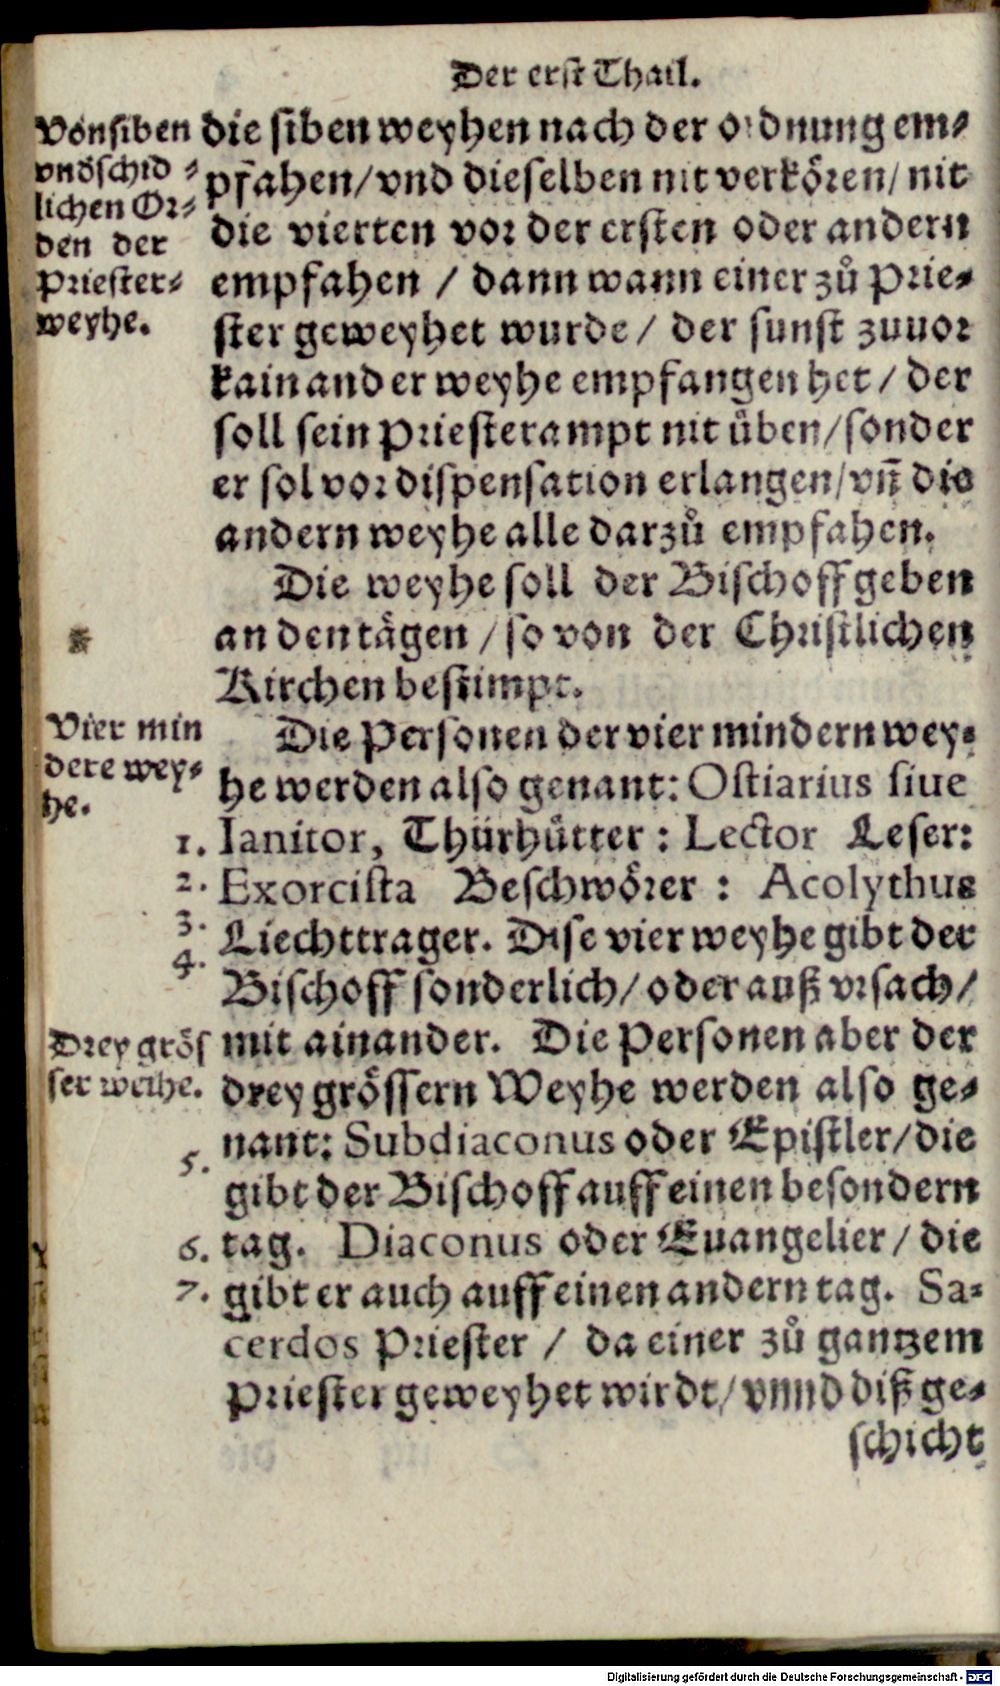 Der erst Thail.
Von siben
vndschid-
lichen Or-
den der
Priester-
weyhe.
die siben weyhen nach der ordnung em-
pfahen/ vnd dieselben nit verkören/ nit
die vierten vor der ersten oder andern
empfahen / dann wann einer zů Prie-
ster geweyhet wurde / der sunst zuuor
kain ander weyhe empfangen het / der
soll sein Priesterampt nit üben/ sonder
er sol vor dispensation erlangen/ vñ die
andern weyhe alle darzů empfahen.
Die weyhe soll der Bischoff geben
an den tägen / so von der Christlichen
Kirchen bestimpt.
*
Vier min
dere wey-
he.
Die Personen der vier mindern wey-
he werden also genant: Ostiarius siue
1. Ianitor, Thürhütter : Lector Leser:
2. Exorcista Beschwörer : Acolythus
3. Liechttrager. Dise vier weyhe gibt der
4. Bischoff sonderlich/ oder auß vrsach/
Drey grös
ser weihe.
mit ainander. Die Personen aber der
drey grössern Weyhe werden also ge-
nant: Subdiaconus oder Epistler/ die
5. gibt der Bischoff auff einen besondern
6. tag. Diaconus oder Euangelier / die
7. gibt er auch auff einen andern tag. Sa-
cerdos Priester / da einer zů gantzem
Priester geweyhet wirdt/ vnnd diß ge-
schicht
Digitalisierung gefördert durch die Deutsche Forschungsgemeinschaft - DFG